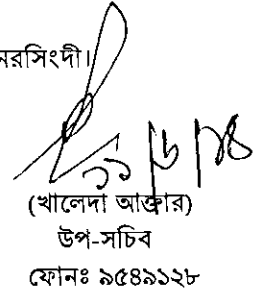 নরসিংদী।
(খালেদা আক্তার)
উপ-সচিব
ফোনঃ ৯৫৪৯১২৮